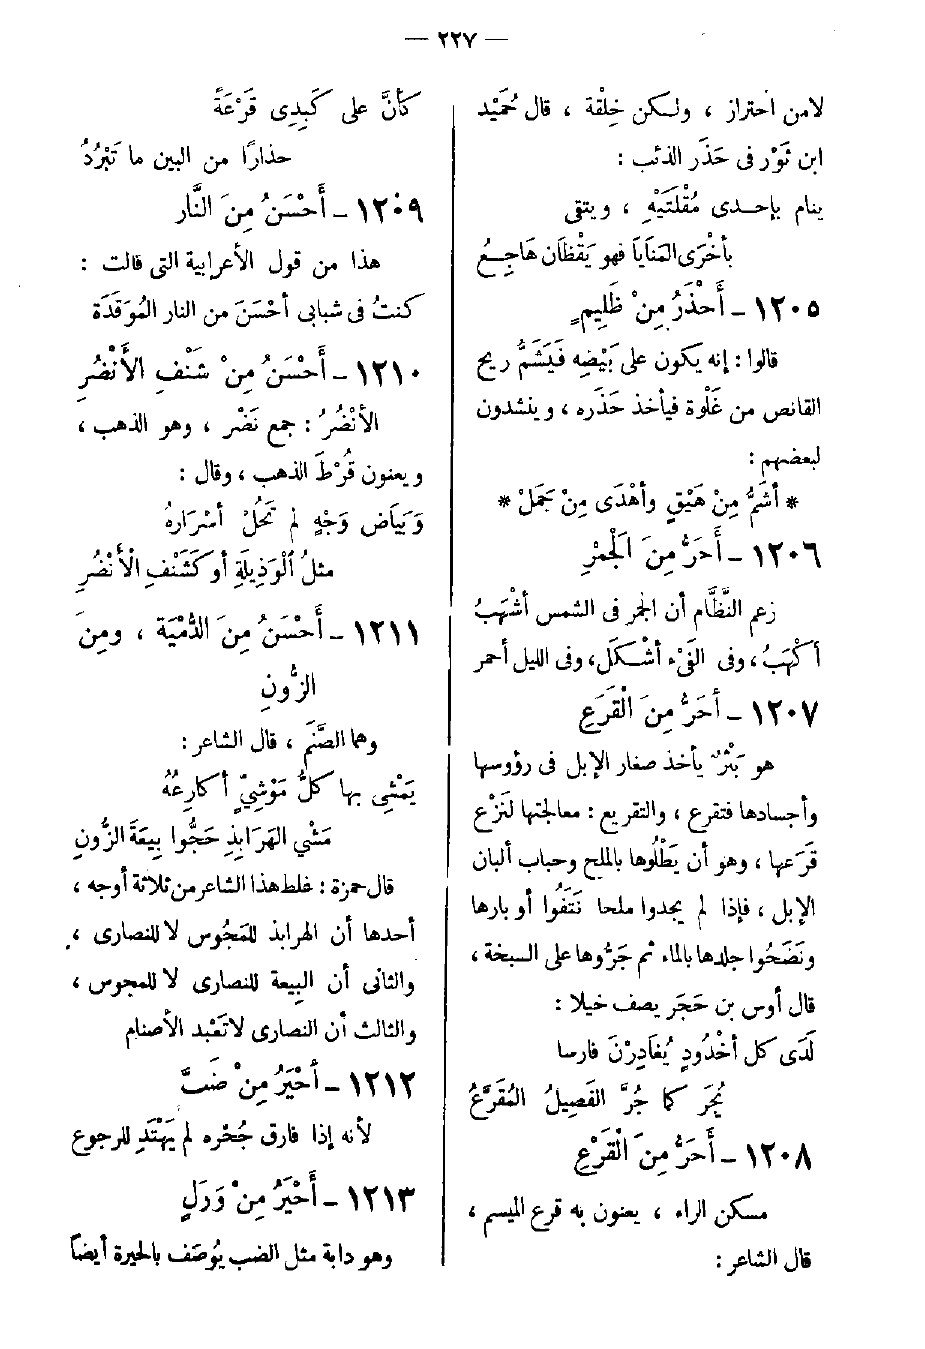 — ٢٢٧ —
لا من احتراز ، ولكن خِلْقة ، قال حُمَيْد
ابن ثَوْر فى حَذَر الذئب :
ينام بإحدى مُقْلَتَيْهِ ، ويتقى
بأخْرَى المَنَايَا فهو يَقْظَان هَاجِعُ
١٢٠٥ – أَحْذَرُ مِنْ ظَلِيمٍ
قالوا : إنه يكون على بَيْضِه فَيَشَمُّ ريح
القانص من غَلْوة فيأخذ حَذَره ، وينشدون
لبعضهم :
* أشَمُّ مِنْ هَيْقٍ وأهْدَى مِنْ جَمَلْ *
١٢٠٦ – أَحَرُّ مِنَ الَجْمْرِ
زعم النَّظَّام أن الجمر فى الشمس أشْهَبُ
أكْهَبُ ، وفى الفَيْء أشْكَل، وفى الليل أحمر
١٢٠٧ – أحَرُّ مِنَ الْقَرَعِ
هو بَثْرٌ يأخذ صغار الإبل فى رؤوسها
وأجسادها فتقرع ، والتقريع : معالجتها لنَزْع
قَرَعها ، وهو أن يَطْلُوها بالملح وحباب ألبان
الإبل ، فإذا لم يجدوا ملحا نَتَفُوا أوبارها
ونَضَحُوا جلدها بالماء ثم جَرُّوها على السبخة ،
قال أوس بن حَجَر يصف خيلا :
لَدَى كل أخْدُودٍ يُغَادِرْنَ فارسا
يُجَر كما جُرَّ الفَصِيلُ المُقَرَّعُ
١٢٠٨ – أَحَرُّ مِنَ الْقَرْعِ
مسكن الراء ، يعنون به قرع الميسم ،
قال الشاعر :
كأنَّ على كَبِدِى قَرْعَةً
حذارًا من البين ما تَبْرُدُ
١٢٠٩ – أَحْسَنُ مِنَ النَّار
هذا من قول الأعرابية التى قالت :
كنتُ فى شبابى أحْسَنَ من النار المُوَقَدَة
١٢١٠ – أَحْسَنُ مِنْ شَنْفِ الأَنْضُرِ
الأنْضُرُ : جمع نَضْر ، وهو الذهب ،
ويعنون قُرْطَ الذهب ، وقال :
وَبَيَاض وَجْهٍ لم تَحُلْ أسْرَارهُ
مثلُ الْوَذِيلَةِ أو كَشَنْفِ الْأنْضُرِ
١٢١١ – أَحْسَنُ مِنَ الدُّمْيَة ، ومِنَ
الزُّونِ
وهما الصَّنَم ، قال الشاعر :
يَمْشِى بها كلُّ مَوْشِيٍّ أكارِعُهُ
مَشْي الهَرَابِذِ حَجُّوا بِيعَةَ الزُّونِ
قال حمزة : غلط هذا الشاعر من ثلاثة أوجه ،
أحدها أن الهرابذ للمَجُوس لا للنصارى ،
والثانى أن البِيعة للنصارى لا للمجوس ،
والثالث أن النصارى لا تَعْبد الأصنام
١٢١٢ – أَحْيَرُ مِنْ ضَبٍّ
لأنه إذا فارق جُحْره لم يَهْتَدِ للرجوع
١٢١٣ – أَحْيَرُ مِنْ وَرَلٍ
وهو دابة مثل الضب يُوصَف بالحيرة أيضاً